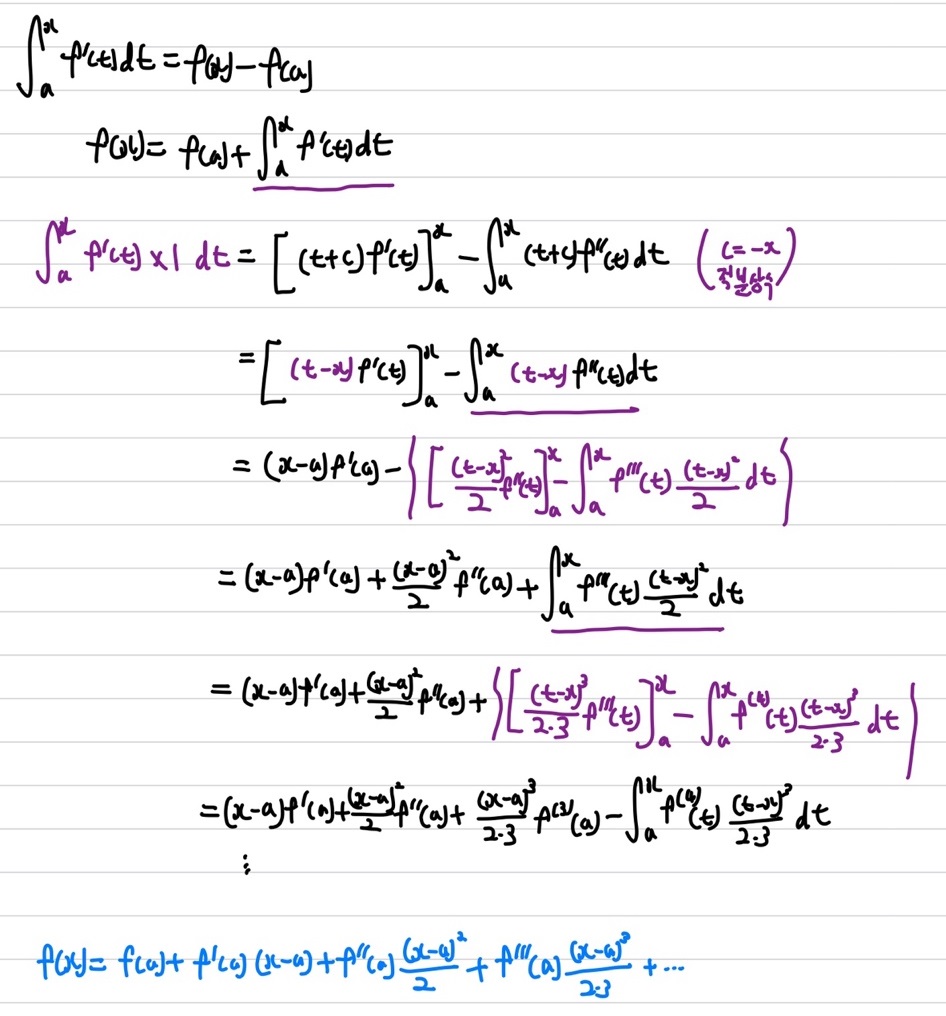 ∫ₐˣ f'(t)dt = f(x) - f(a)
f(x) = f(a) + ∫ₐˣ f'(t)dt
∫ₐˣ f'(t) × 1 dt = [(t+c)f'(t)]ₐˣ - ∫ₐˣ (t+c)f''(t)dt (c = -x 적분상수)
= [(t-x)f'(t)]ₐˣ - ∫ₐˣ (t-x)f''(t)dt
= (x-a)f'(a) - {[(t-x)²/2 f''(t)]ₐˣ - ∫ₐˣ f'''(t) (t-x)²/2 dt}
= (x-a)f'(a) + (x-a)²/2 f''(a) + ∫ₐˣ f'''(t) (t-x)²/2 dt
= (x-a)f'(a) + (x-a)²/2 f''(a) + {[(t-x)³/2·3 f'''(t)]ₐˣ - ∫ₐˣ f⁽⁴⁾(t) (t-x)³/2·3 dt}
= (x-a)f'(a) + (x-a)²/2 f''(a) + (x-a)³/2·3 f⁽³⁾(a) - ∫ₐˣ f⁽⁴⁾(t) (t-x)³/2·3 dt
⋮
f(x) = f(a) + f'(a)(x-a) + f''(a) (x-a)²/2 + f'''(a) (x-a)³/2·3 + ⋯